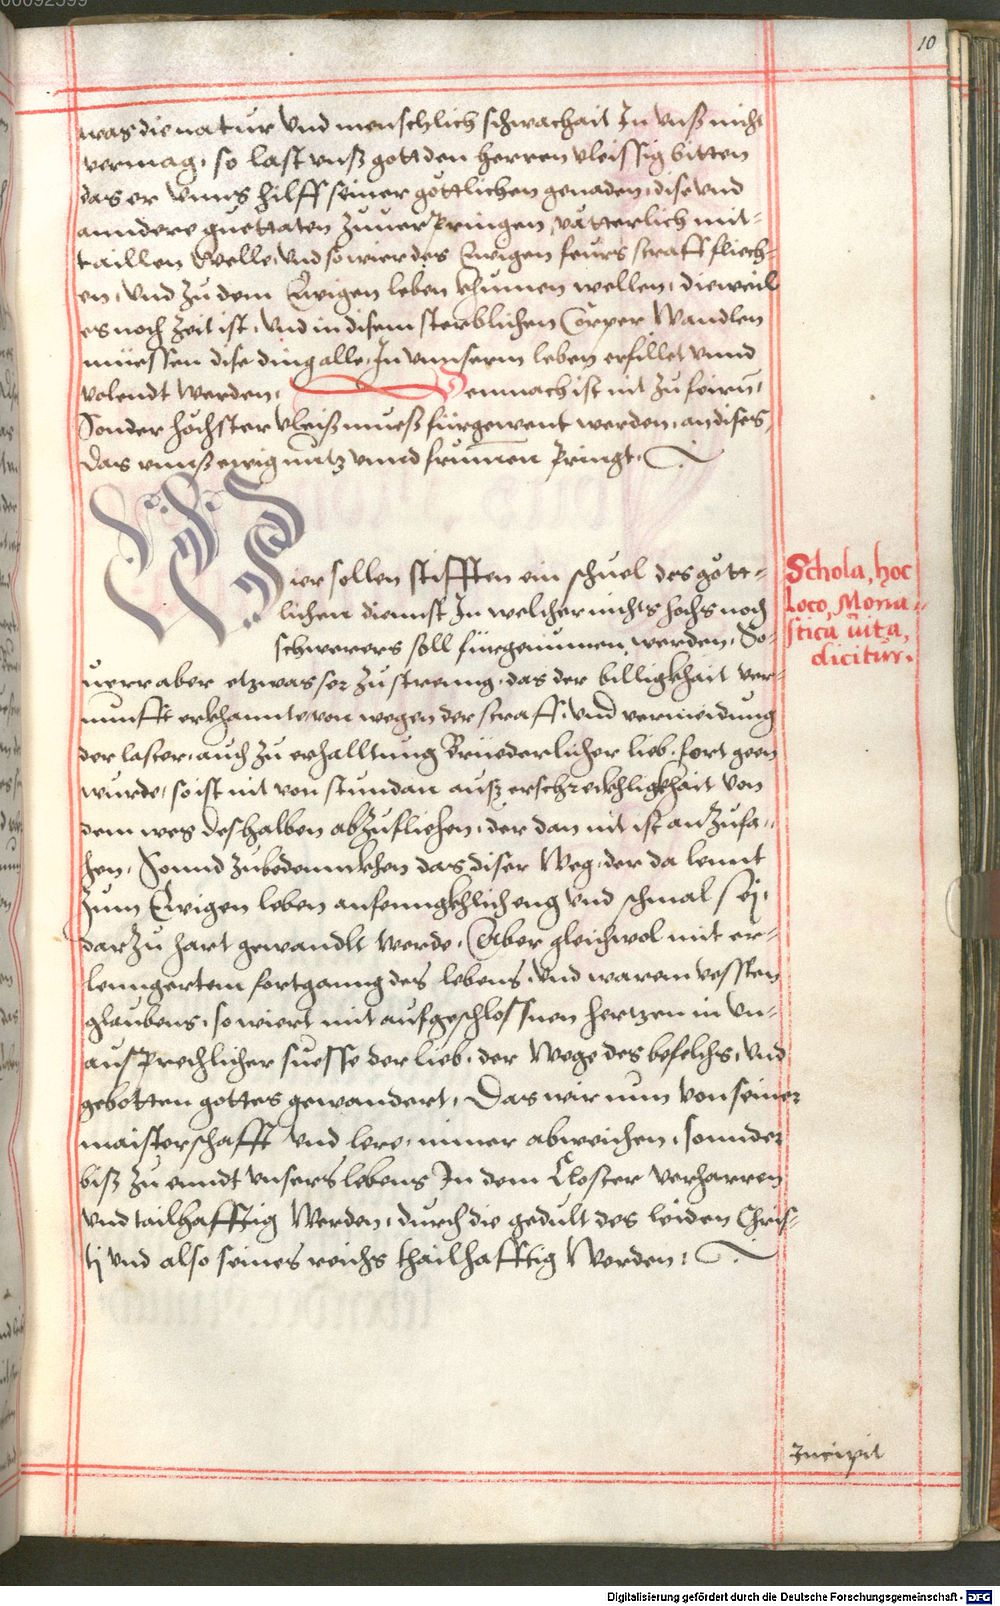 10
was die natur vnd menschlich schwachait In vnß nicht
vermag, so last vnß gott den herren vleissig bitten
das er vnns hilff seiner göttlichen genaden, dise vnd
anndere guettaten zuuerpringen, vätterlich mit-
taillen welle, vnd so wier des Ewigen feurs straff fliech-
en, vnd zu dem Ewigen leben khumen wellen, dieweil
es noch zeit ist, vnd in disem sterblichen Cörper Wandlen
müessen dise ding alle, In vnnserm leben erfillet vnnd
volendt werden, Demnach ist nit zu feirn,
Sonder höchster vleiß mueß fürgewent werden, an dises,
Das vnnß ewig nutz vnnd frumen pringt.
Wier sollen stifften ein schuel des gött-
lichen diennst In welcher nichts hochs noch
schwerers soll fürgenumen werden, So-
uerr aber etzwas ser zu streng, das der billigkhait ver-
nunfft erkhannte, von wegen der straff, vnd vermeidung
der laster, auch zu erhalltung Brüederlicher lieb, fort geen
wurde, so ist nit von stundan auß erschreckhligkhait von
dem weg deshalben abzufliehen, der dan nit ist anzufa-
hen, Sonnd zubedennkhen das diser Weg, der da lennt
zum Ewigen leben anfenngkhlich eng vnd schmal sej,
darzu hart gewandlt werde, Aber gleichwol mit er-
lenngertem fortganng des lebens, vnd warem vessten
glaubens, so wiert mit aufgeschlossnen hertzen in vn-
aussprechlicher suesse der lieb, der Wege des befelchs, vnd
gebotten gottes gewandert, Das wir nun von seiner
maisterschafft vnd lere, nimer abweichen, sonnder
biß zu enndt vnsers lebens In dem Closter verharren
vnd tailhafftig Werden, durch die gedult des leiden Chris-
tj vnd also seines reichs thailhafftig Werden.
Schola, hoc
loco, Mona-
stica uita,
dicitur.
Incipit
Digitalisierung gefördert durch die Deutsche Forschungsgemeinschaft - DFG